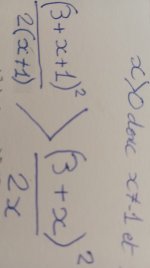 x>0 donc x≠-1 et
(3+x+1)² / 2(x+1) > (3+x)² / 2x